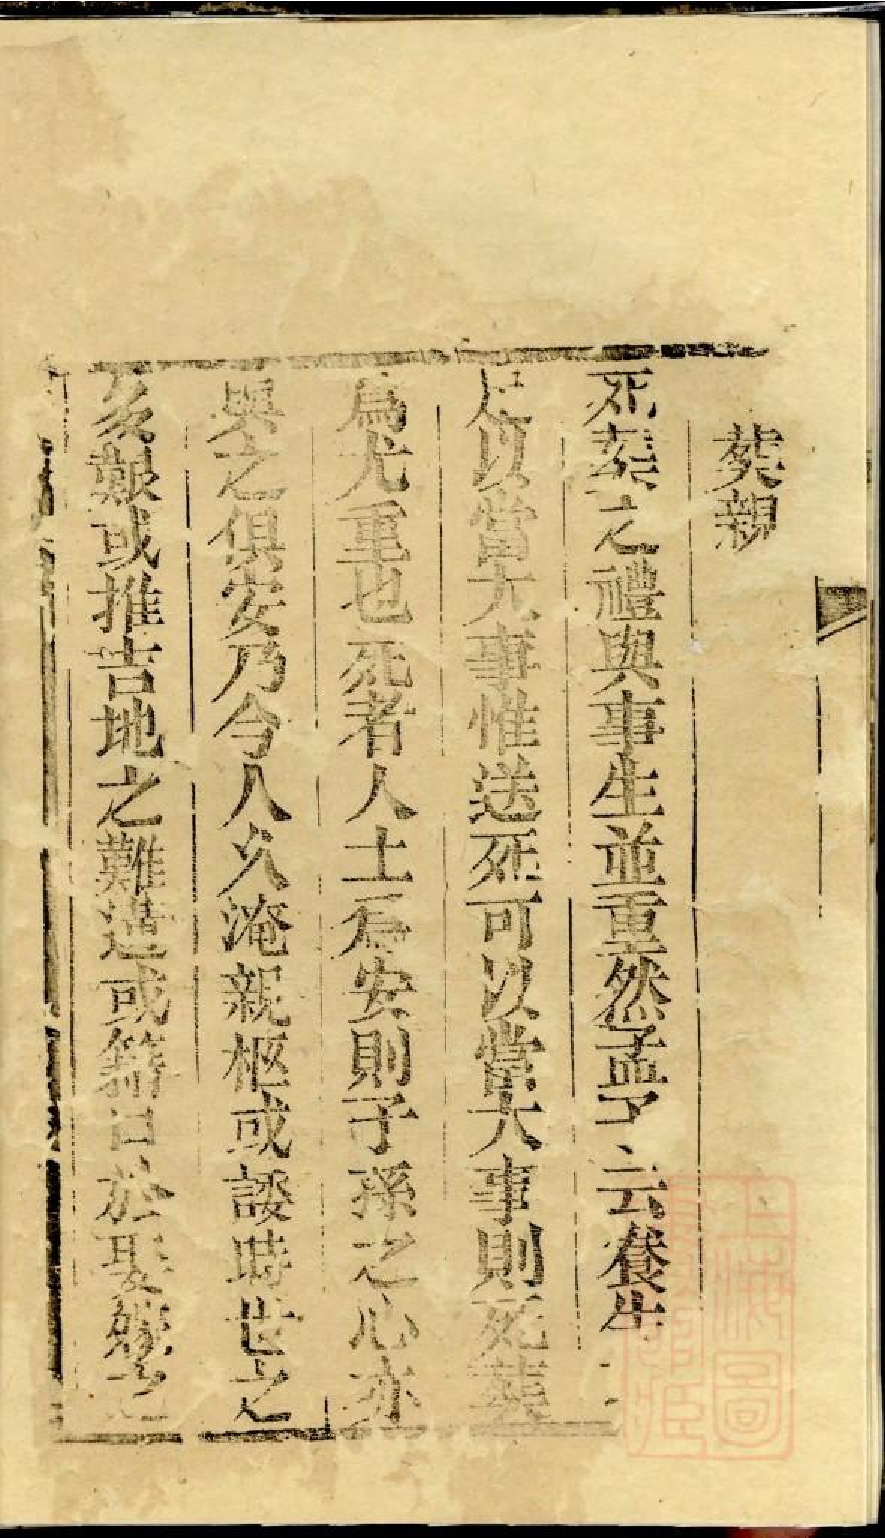 葬親
死葬之禮與事生並重然孟子云養生
足以當大事惟送死可以當大事則死葬
為尤重也死者人土為安則子孫之心亦
與之俱安乃今人久淹親柩或諉時世之
多艱或推吉地之難遘或籍口於娶嫁之
上海圖